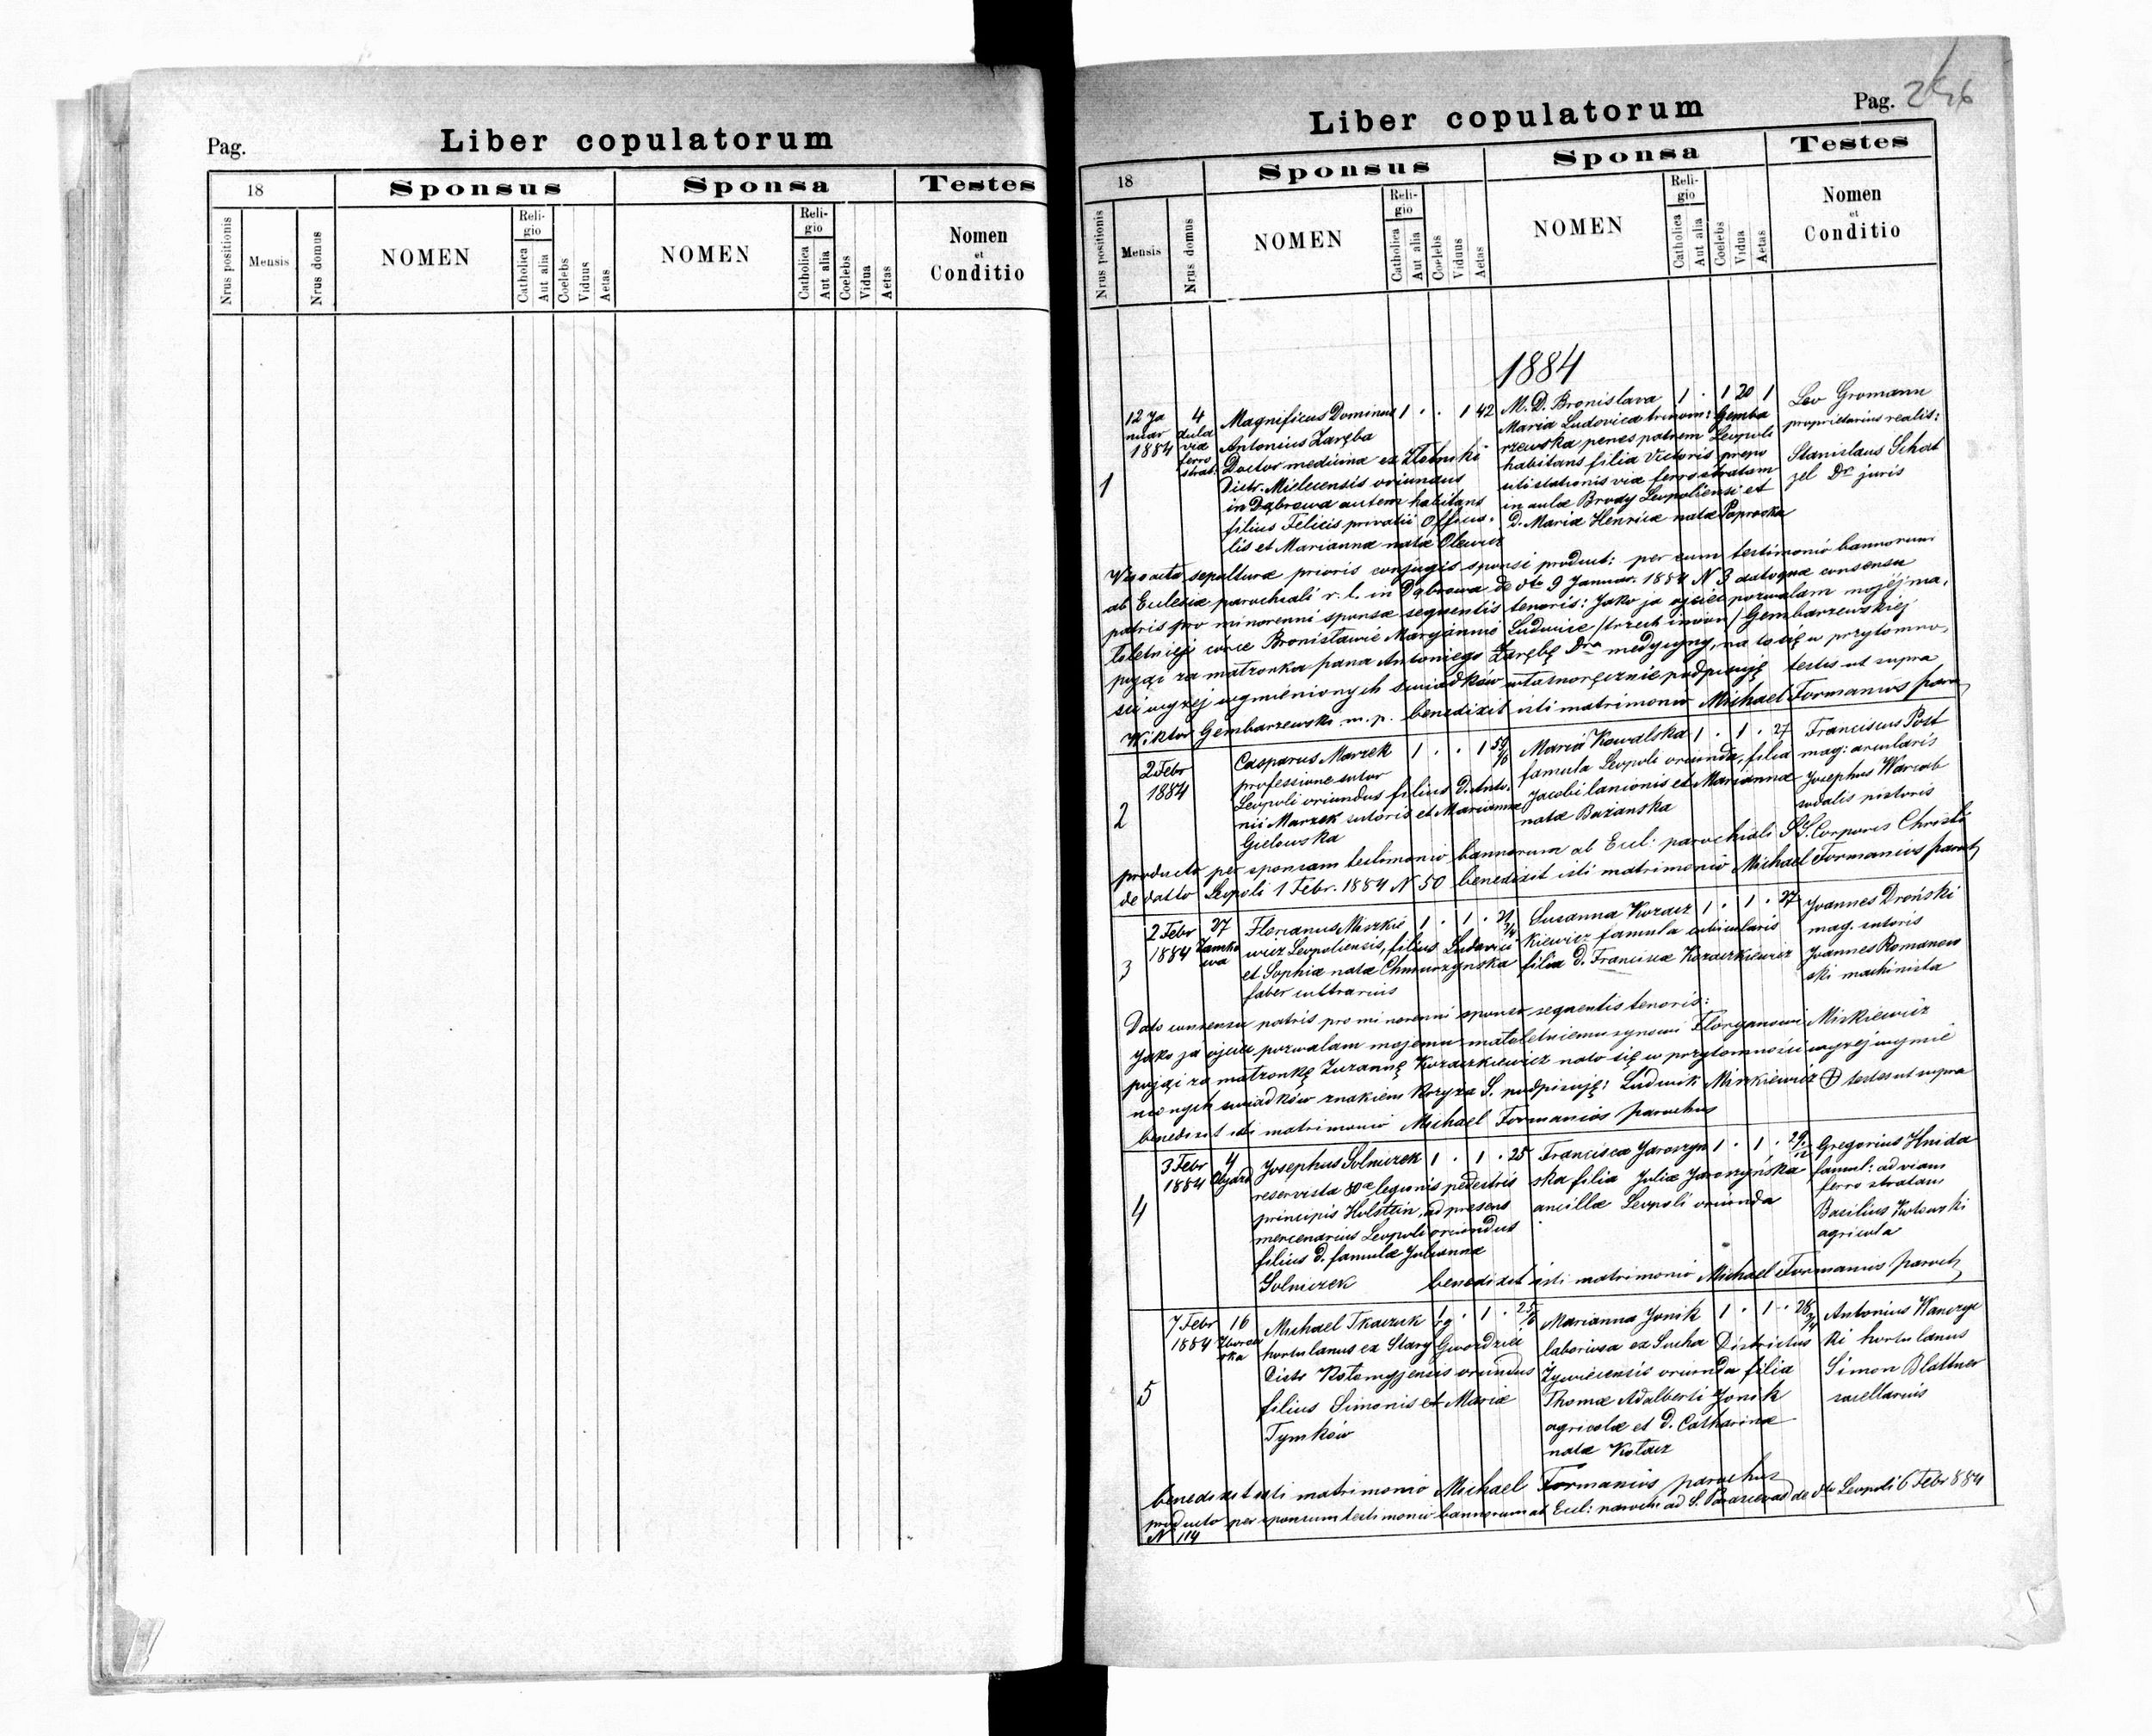 Pag.
Liber copulatorum
18
Sponsus
Sponsa
Testes
Nrus positionis
Mensis
Nrus domus
NOMEN
Religio
Catholica
Aut alia
Coelebs
Viduus
Aetas
NOMEN
Religio
Catholica
Aut alia
Coelebs
Vidua
Aetas
Nomen
et
Conditio
Liber copulatorum
Pag.
18
Sponsus
Sponsa
Testes
Nrus positionis
Mensis
Nrus domus
NOMEN
Religio
Catholica
Aut alia
Coelebs
Viduus
Aetas
NOMEN
Religio
Catholica
Aut alia
Coelebs
Vidua
Aetas
Nomen
et
Conditio
1884
1
12 Ja
nuar
1884
4
Aula
viæ
ferro
strat:
Magnificus Dominus
Antonius Zaręba
Doctor medicinæ ex Złotniki
Distr. Mielecensis oriundus
in Dąbrowa autem habitans
filius Felicis privatii Officia-
lis et Mariannæ natæ Olewicz
1 · · 1 42
M. D. Bronislava
Maria Ludovica trinom: Gemba
rzewska penes patrem Leopoli
habitans filia Victoris præpo
siti stationis viæ ferro stratam
in aulæ Brody Leopoliensi et
D. Mariæ Henricæ natæ Paprocka
1 · 1 20 1
Leo Gromann
proprietarius realis:
Stanislaus Schät
zel Dr juris
Viso acto sepulturæ prioris conjugis sponsi product: per eum testimonio bannorum
ab Ecclesia parochiali r. l. in Dąbrowa de dto 9 Januar. 1884 N 3 datoque consensu
patris pro minorenni sponsa sequentis tenoris: Jako ja ojciec pozwalam mojéj ma-
łoletniéj córce Bronisławie Maryannie Ludwice /trzech imion/ Gembarzewskiéj
pojąć za małżonka pana Antoniego Zarębę Dra medycyny, na to się w przytomno-
ści wyżéj wymienionych świadków własnoręcznie podpisuję testes ut supra
Wiktor Gembarzewski m. p. benedixit isti matrimonio Michael Formanios paroch
2
2 Febr
1884
Casparus Marzek
professione sutor
Leopoli oriundus filius D. Anto-
nii Marzek sutoris et Marianna
Gielowska
1 · · 1
Maria Kowalska
famula Leopoli oriunda, filia
Jacobi lanionis et Mariannæ
natæ Bużanska
1 · 1 · 27
Franciscus Post
mag: arcularis
Josephus Warcab
sodalis pistoris
producto per sponsam testimonio bannorum ab Eccl: parochiali SS. Corporis Christi
de datto Leopoli 1 Febr. 1884 N 50 benedixit isti matrimonio Michael Formanios paroch
3
2 Febr
1884
27
Zamko
wa
Florianus Miszkie
wicz Leopoliensis, filius Ludovici
et Sophiæ natæ Chmurzynska
faber cultrarius
1 · 1 · 21
Susanna Kozacz
kiewicz famula cubicularis
filia D. Franciscæ Kozaczkiewicz
1 · 1 · 27
Joannes Droński
mag. sutoris
Joannes Romanow
ski machinista
Dato consensu patris pro minorenni sponso sequentis tenoris:
Jako ja ojciec pozwalam mojemu małoletniemu synowi Floryanowi Miszkiewicz
pojąć za małżonkę Zuzannę Kozaczkiewicz na to się w przytomności wyżéj wymie
nionych świadków znakiem Krzyża S. podpisuję: Ludwik Miszkiewicz ⊕ testes ut supra
benedixit isti matrimonio Michael Formanios parochus
4
3 Febr
1884
4
Josephus Solniczek
reservista 80æ legionis pedestris
principis Holstein, ad presens
mercenarius Leopoli oriundus
filius D. famulæ Julianna
Solniczek
1 · 1 · 25
Francisca Jaroszyn
ska filia Juliæ Jaroszyńska
ancillæ Leopoli oriunda
1 · 1 · 29
Gregorius Hnida
famul: ad viam
ferro stratam
Basilius Kotowski
agricola
benedixit isti matrimonio Michael Formanios paroch
5
7 Febr
1884
16
Michael Tkaczuk
hortulanus ex Stary Gwoździec
Distr Kołomyjensis oriundus
filius Simonis et Mariæ
Tymków
1 · 1 · 25
Marianna Jonik
laboriosa ex Sucha Districtus
Żywiecensis oriunda filia
Thomæ Adalberti Jonik
agricolæ et D. Catharinæ
natæ Kołacz
1 · 1 · 28
Antonius Wanczyc
ki hortulanus
Simon Blattner
sacellarius
benedixit isti matrimonio Michael Formanios parochus
producto per sponsum testimonio bannorum ab Eccl: paroch: ad S. Parascevad de dto Leopoli 6 Febr 884
N 114